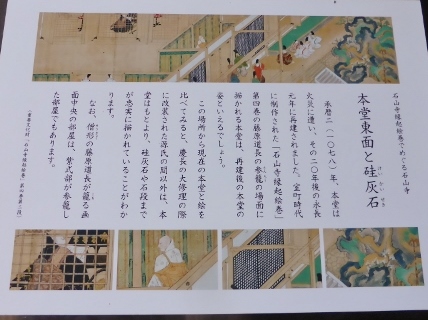 石山寺縁起絵巻でめぐる石山寺
本堂東面と硅灰石
けい かい せき
承暦二(一〇七八)年、本堂は
火災に遭い、その二〇年後の永長
元年に再建されました。室町時代
に制作された「石山寺縁起絵巻」
第四巻の藤原道長の参籠の場面に
描かれる本堂は、再建後の本堂の
姿といえるでしょう。
この場所から現在の本堂と絵を
比べてみると、慶長の大修理の際
に改築された源氏の間以外は、本
堂はもとより、硅灰石や石段まで
が忠実に描かれていることがわか
ります。
なお、僧形の藤原道長が籠る画
面中央の部屋は、紫式部が参籠し
た部屋でもあります。